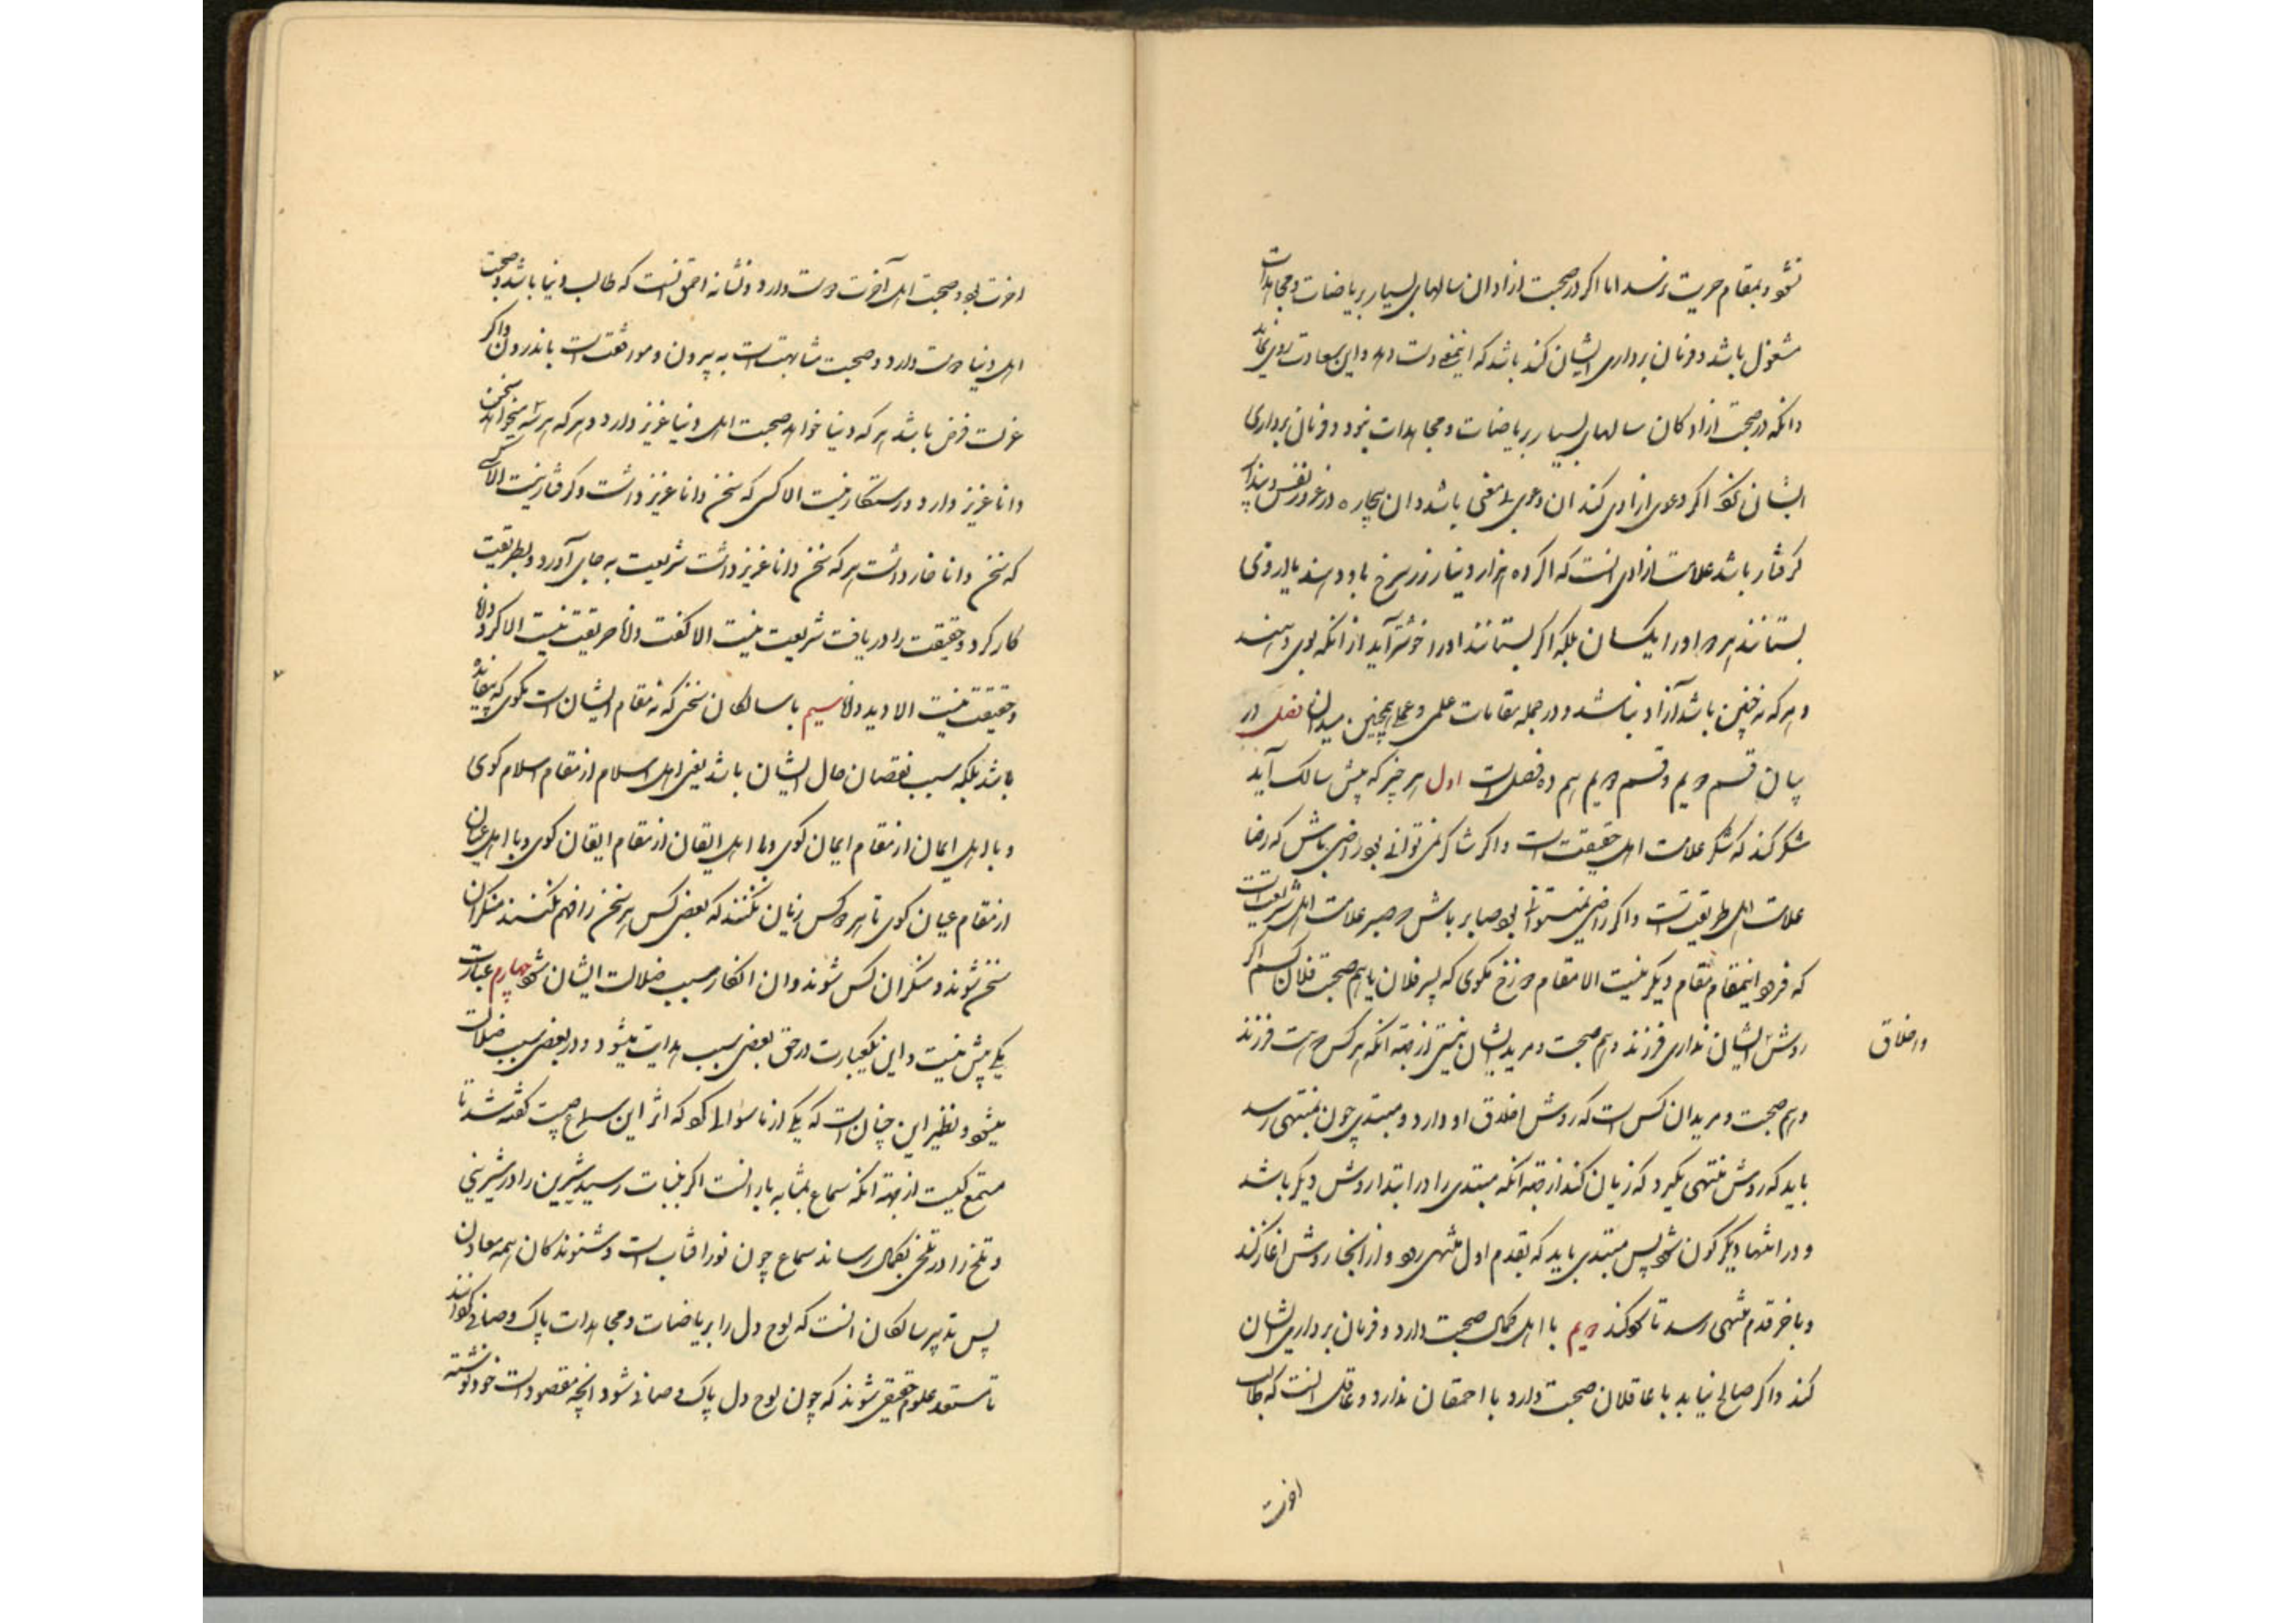 نشود بمقام حریت نرسد اما اگر در صحبت ازادان سالهای بسیار بریاضات و مجاهدات
مشغول باشد و فرمان برداری ایشان کند باشد که اینمعنی دست دهد و این سعادت روی نماید
وانکه در صحبت ازادکان سالهای بسیار بریاضات و مجاهدات نبود و فرمان برداری
ایشان نکند اکر دعوی ازادی کند ان دعوی بی معنی باشد و ان بیچاره در غرور نفس و پندار
کرفتار باشد علامت ازادی انست که اکر ده هزار دینار زر سرخ باو دهند یا از وی
بستانند هر دو اورا یکسان بلکه اکر بستانند اورا خوشتر آید از انکه بوی دهند
و هر که نه چنین باشد آزاد نباشد و در جمله مقامات علمی و عملی همچنین میدان فصل در
بیان قسم دویم و قسم دویم هم ده فصلست اول هر چیز که پیش سالک آید
شکر کند که شکر علامت اهل حقیقت است و اکر شاکر نمی توانی بود راضی باش که رضا
علامت اهل طریقتست و اکر راضی نمیتوانی بود صابر باش که صبر علامت اهل شریعتست
که فرود اینمقام مقام دیکر نیست الا مقام دوزخ مکوی که پسر فلان یا هم صحبت فلان کسم اکر
روش ایشان نداری فرزند و هم صحبت و مرید ایشان نیستی از جهة انکه هر کس دوست فرزند
و اخلاق
و هم صحبت و مرید ان کس است که روش اخلاق او دارد و مبتدی چون بمنتهی رسد
باید که روش منتهی نکیرد که زیان کند از جهة انکه مبتدی را در ابتدا روش دیکر باشد
و در انتها دیکر کون شود پس مبتدی باید که بقدم اول منتهی رود و از انجا روش اغاز کند
و باخر قدم منتهی رسد تا سود کند دویم با اهل کمال صحبت دارد و فرمان برداری ایشان
کند و اکر صالح نیابد با عاقلان صحبت دارد با احمقان ندارد و عاقل انست که طالب
اخرت
اخرت بود و صحبت اهل آخرت دوست دارد و نشانه احمق انست که طالب دنیا باشد و صحبت
اهل دنیا دوست دارد و صحبت مشابهتست به بیرون و موافقتست باندرون و اکر
عزلت فرض باشد هر که دنیا خواهد صحبت اهل دنیا عزیز دارد و هر که میخواهد سخن
دانا عزیز دارد و رستکار نیست الا کسی که سخن دانا عزیز داشت و کرفتار نیست الا کسی
که سخن دانا خار داشت هر که سخن دانا عزیز داشت شریعت به جای آورد و بطریقت
کار کرد و حقیقت را دریافت شریعت نیست الا کفت دانا طریقت نیست الا کرد دانا
و حقیقت نیست الا دید دانا سیم با سالکان سخنی که نه مقام ایشان است مکوی که بیفایده
باشد بلکه سبب نقصان حال ایشان باشد یعنی اهل اسلام از مقام اسلام کوی
و با اهل ایمان از مقام ایمان کوی و با اهل ایقان از مقام ایقان کوی و با اهل عیان
از مقام عیان کوی تا هر دو کس زیان نکنند که بعضی کس هر سخن را فهم نکنند منکر ان
سخن شوند و منکر ان کس شوند و ان انکار سبب ضلالت ایشان شود چهارم عبارت
یکی بیش نیست و این یکعبارت در حق بعضی سبب هدایت میشود و در بعضی سبب ضلالت
میشود و نظیر این چنان است که یکی از ما سوالی کرد که اثر این سماع چیست کفته شد تا
مستمع کیست از جهة انکه سماع بمثابه بارانست اکر بنبات رسید شیرین را در شیرینی
و تلخ را در تلخی بکمال رساند سماع چون نور افتاب است و شنوندکان همه معادن
پس تدبیر سالکان انست که لوح دل را بریاضات و مجاهدات پاک و صافی کردانند
تا مستعد علوم حقیقی شوند که چون لوح دل پاک و صافی شود انچه مقصود است خود نوشته